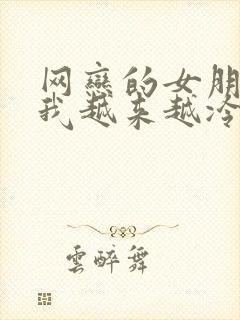 网恋的女朋
我越来越冷
雲醉舞